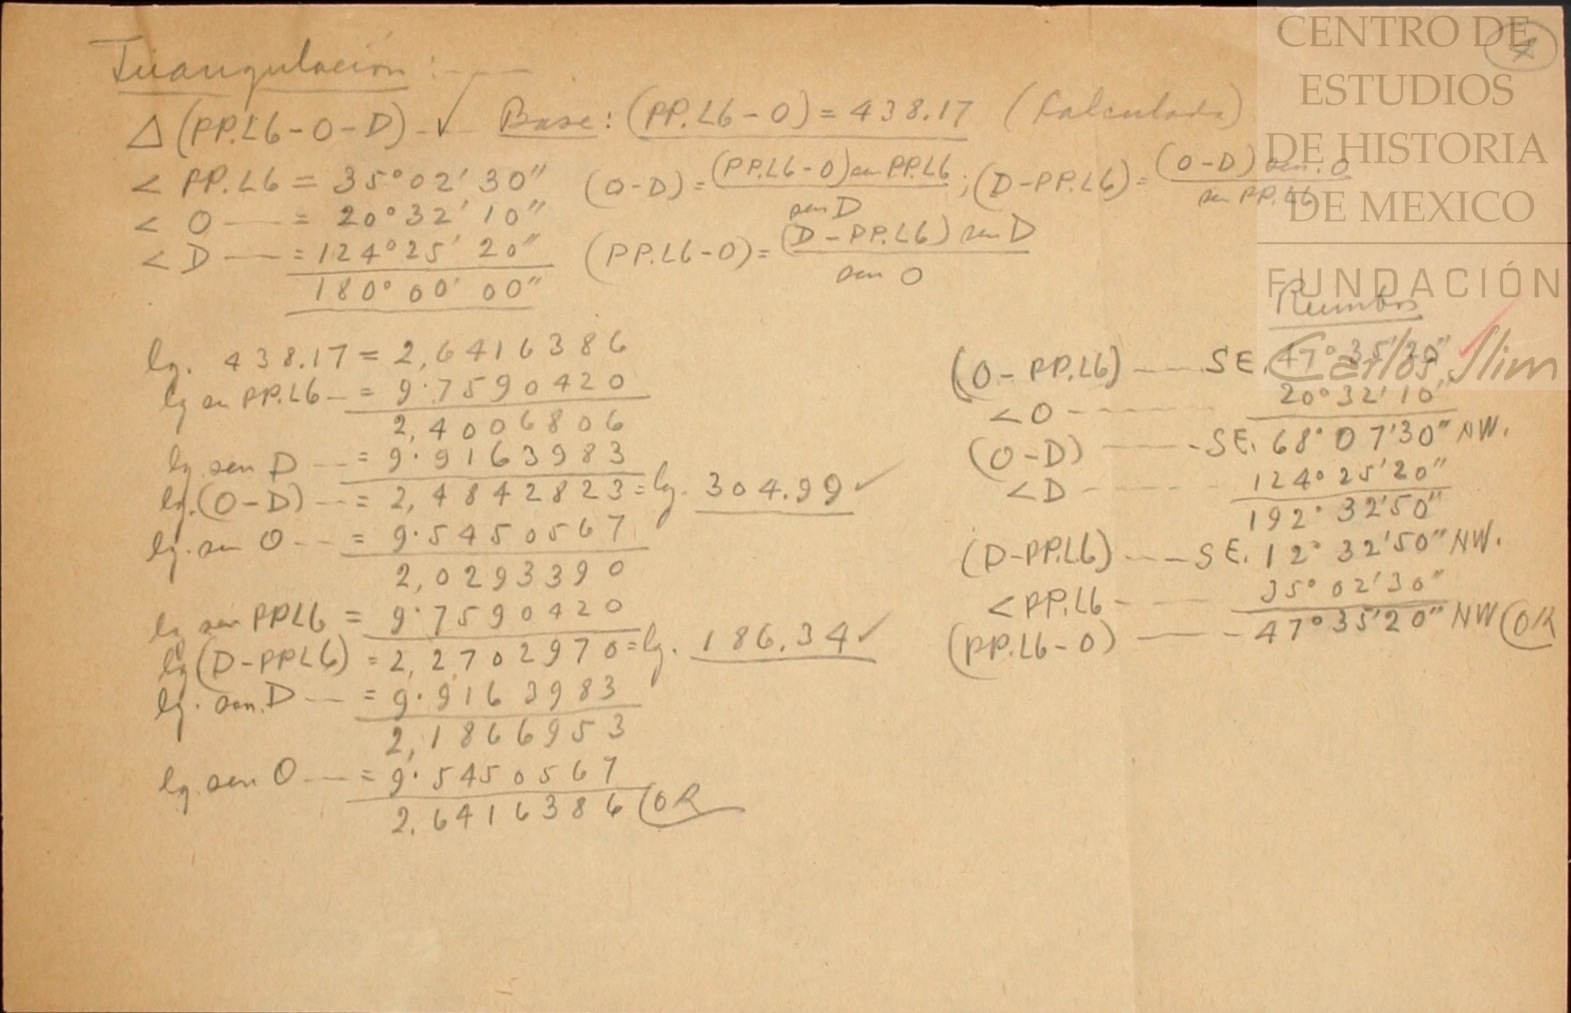 Triangulación:----
Δ(PP.L6-O-D)-√ Base: (PP.L6-O) = 438.17 (Calculada)
< PP.L6 = 35°02'30" (O-D) = (PP.L6-O) sen PP.L6 / sen D ; (D-PP.L6) = (O-D) sen. O / sen PP.L6
< O --- = 20°32'10"
< D --- = 124°25'20" (PP.L6-O) = (D-PP.L6) sen D / sen O
180°00'00"
lg. 438.17 = 2,6416386
lg sen PP.L6 - = 9.7590420
2,4006806
lg. sen D --- = 9.9163983
lg. (O-D) --- = 2,4842823 = lg. 304.99 ✓
lg. sen O --- = 9.5450567
2,0293390
lg sen PPL6 = 9.7590420
lg (D-PPL6) = 2,2702970 = lg. 186.34 ✓
lg. sen. D --- = 9.9163983
2,1866953
lg. sen O --- = 9.5450567
2.6416386 (OK
Rumbos
(O-PP.L6) ---- SE. 47°35'20" ✓
< O ----- 20°32'10"
(O-D) ----- SE. 68°07'30" NW.
< D ----- 124°25'20"
192°32'50"
(D-PP.L6) ---- SE. 12°32'50" NW.
< PP.L6 ---- 35°02'30"
(PP.L6-O) ---- 47°35'20" NW (OK
CENTRO DE
ESTUDIOS
DE HISTORIA
DE MEXICO
FUNDACIÓN
Carlos Slim